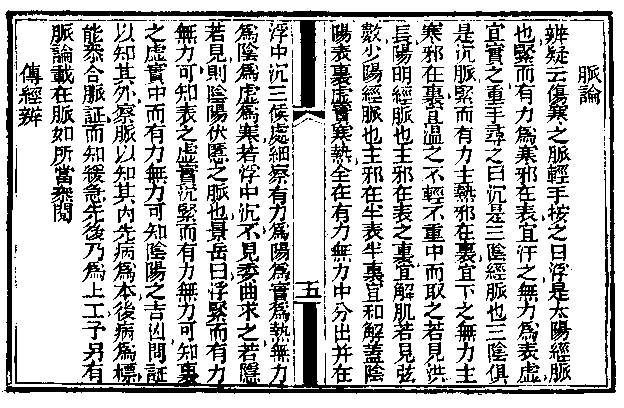 脈論
辨疑云傷寒之脈輕手按之曰浮是太陽經脈
也緊而有力爲寒邪在表宜汗之無力爲表虛
宜實之重手尋之曰沉是三陰經脈也三陰俱
是沉脈緊而有力主熱邪在裏宜下之無力主
寒邪在裏宜溫之不輕不重中而取之若見洪
長陽明經脈也主邪在表之裏宜解肌若見弦
數少陽經脈也主邪在半表半裏宜和解蓋陰
陽表裏虛實寒熱全在有力無力中分出并在
五
浮中沉三候處細察有力爲陽爲實爲熱無力
爲陰爲虛爲寒若浮中沉不見委曲求之若隱
若見則陰陽伏匿之脈也景岳曰浮緊而有力
無力可知表之虛實沉緊而有力無力可知裏
之虛實中而有力無力可知陰陽之吉凶問証
以知其外察脈以知其內先病爲本後病爲標
能叅合脈証而知緩急先後乃爲上工予另有
脈論載在脈如所當叅閱
傳經辨